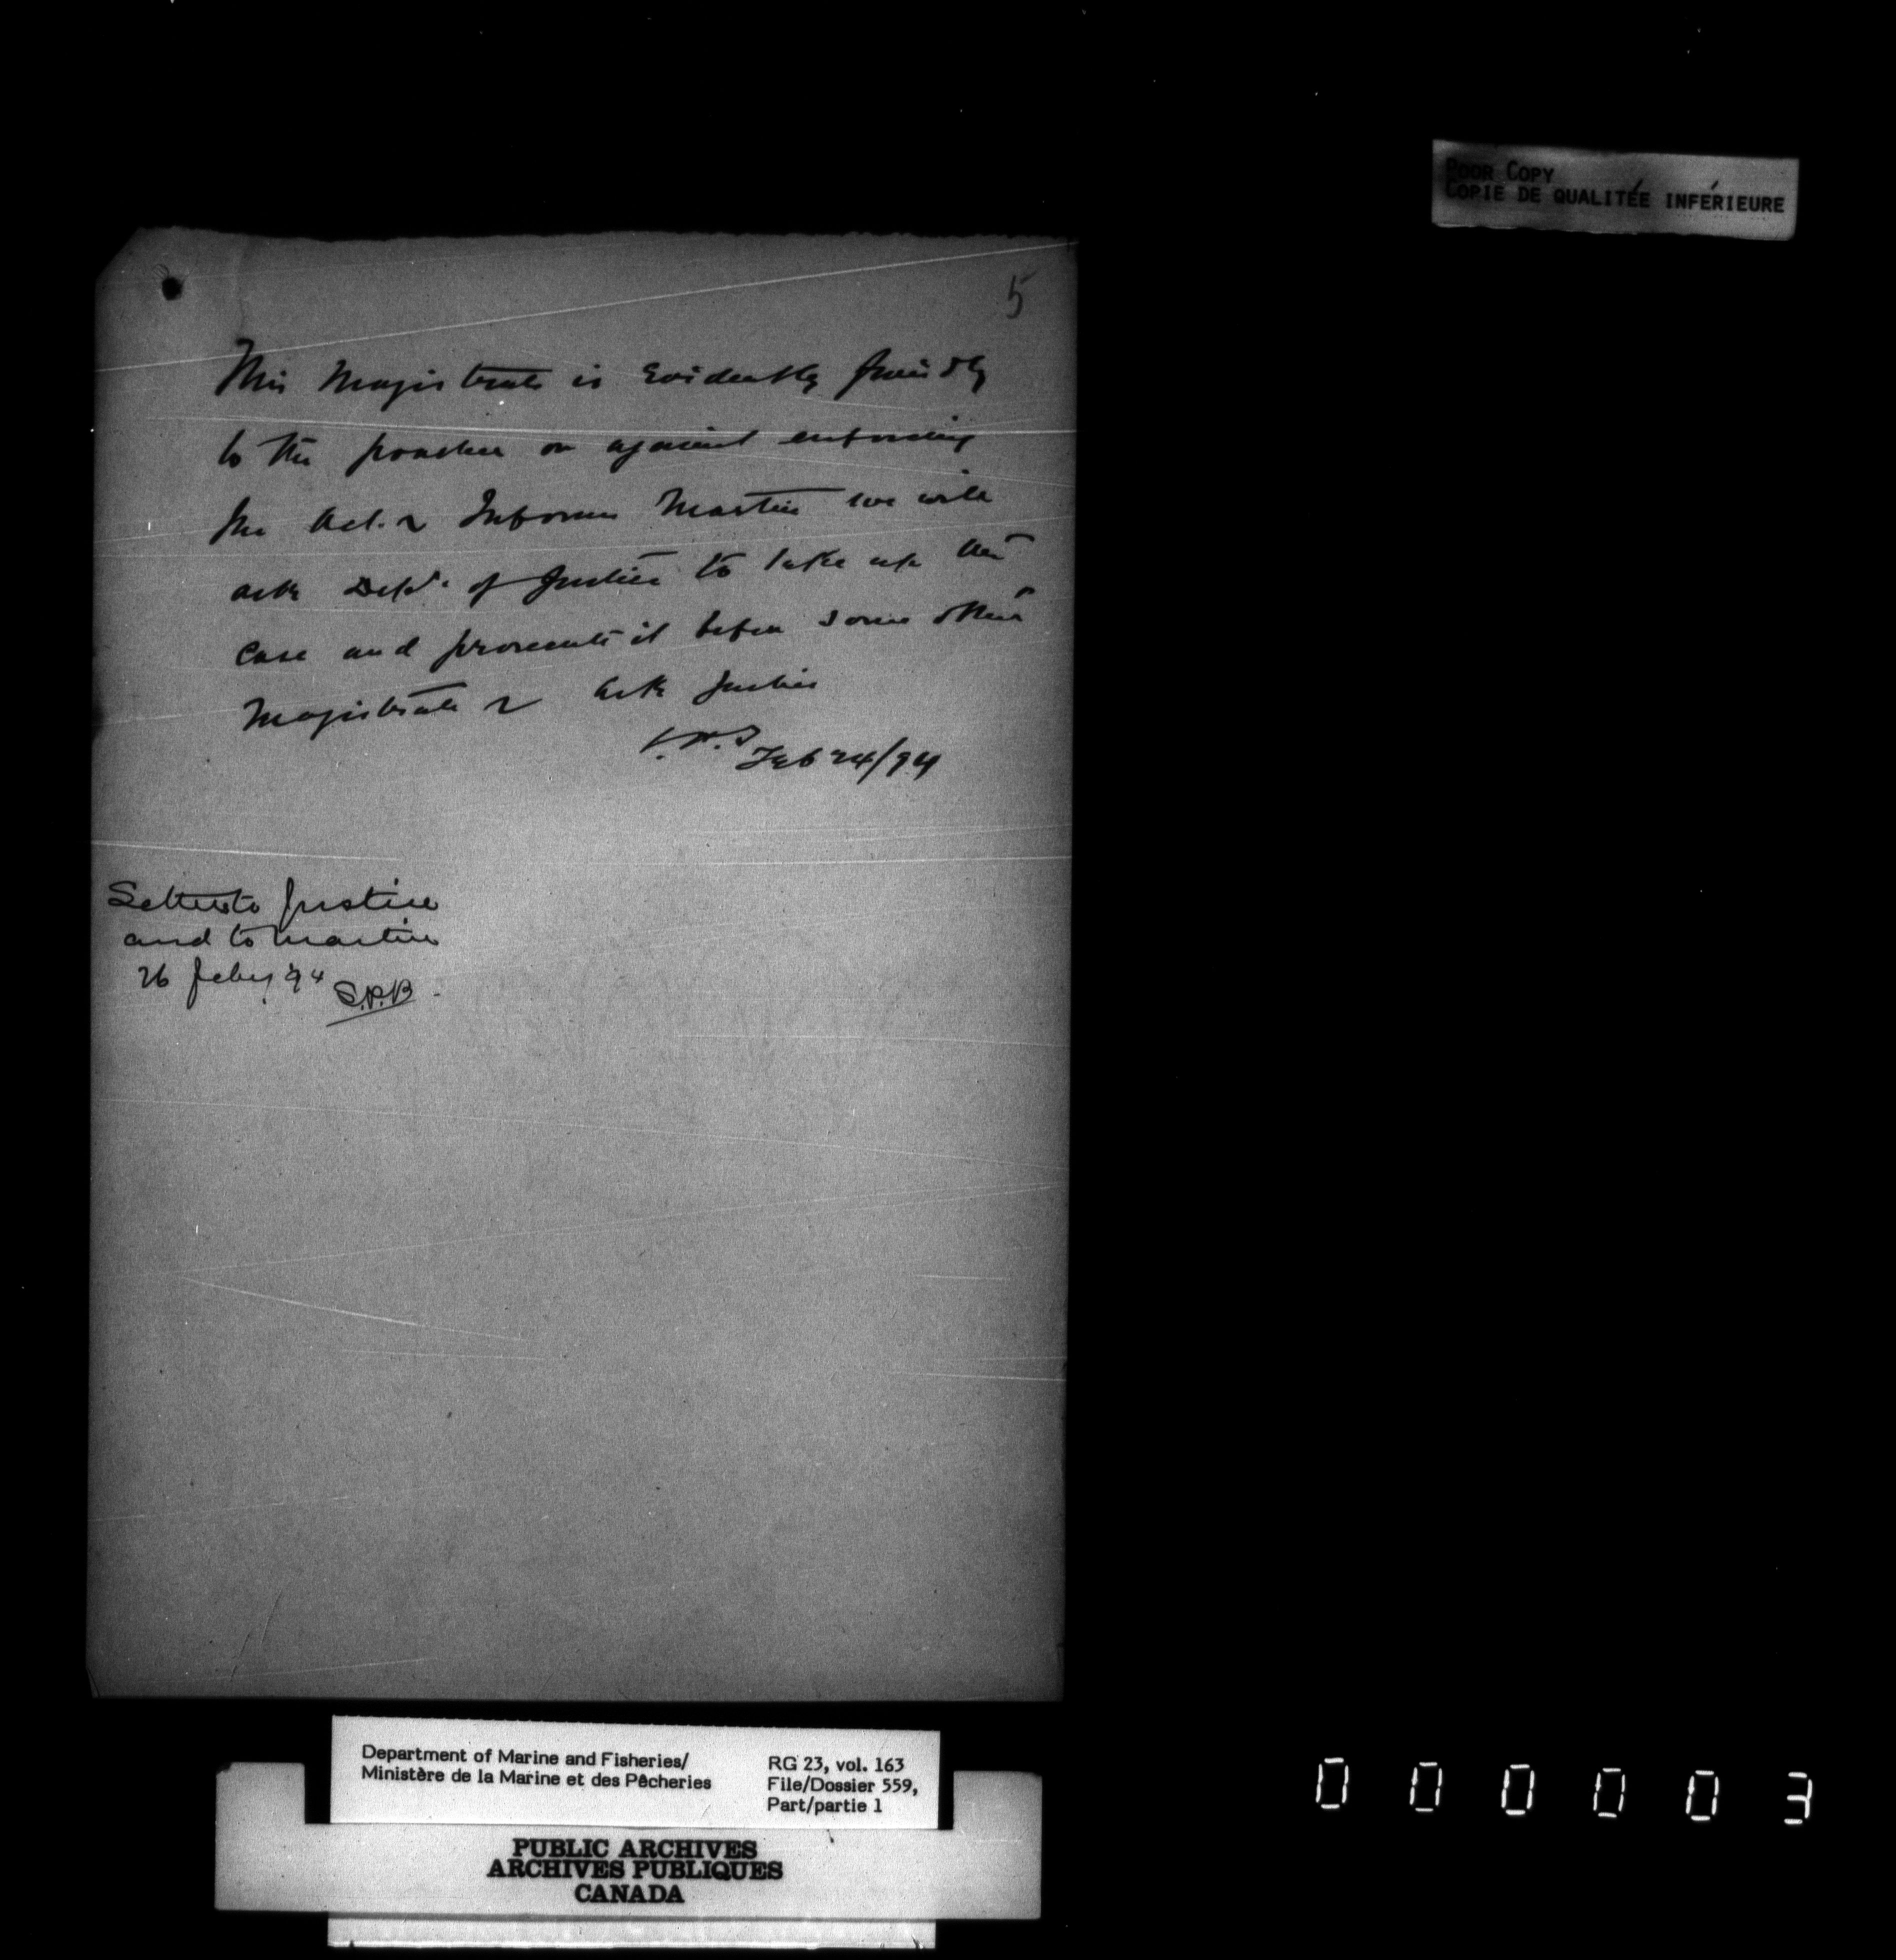 POOR COPY
COPIE DE QUALITÉE INFÉRIEURE
5
This Magistrate is evidently friendly
to the poacher or against enforcing
the Act. Inform Martin we will
ask Dept. of Justice to take up the
case and prosecute it before some other
Magistrate Ask Justice
Feb 24/94
Letters to Justice
and to Martin
26 Feby 94 S.P.B.
Department of Marine and Fisheries/
Ministère de la Marine et des Pêcheries
RG 23, vol. 163
File/Dossier 559,
Part/partie 1
PUBLIC ARCHIVES
ARCHIVES PUBLIQUES
CANADA
000003